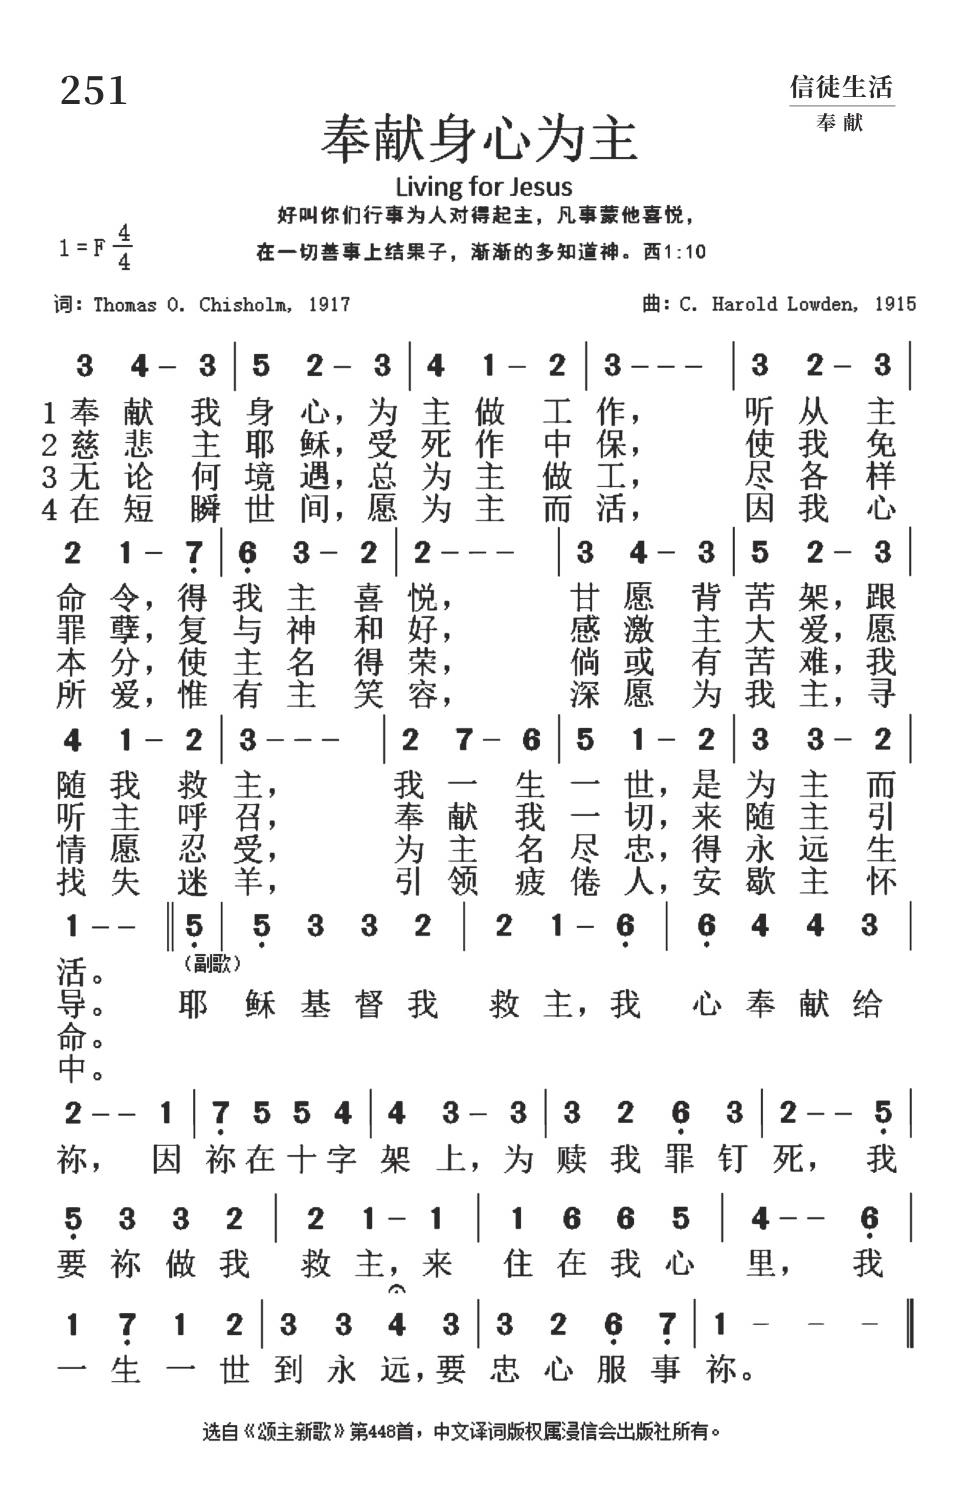 251
信徒生活
奉献
奉献身心为主
Living for Jesus
好叫你们行事为人对得起主，凡事蒙他喜悦，
1=F 4/4
在一切善事上结果子，渐渐的多知道神。西1:10
词：Thomas O. Chisholm, 1917
曲：C. Harold Lowden, 1915
3 4 - 3 | 5 2 - 3 | 4 1 - 2 | 3 - - - | 3 2 - 3 |
1 奉献我身心，为主做工作，听从主
2 慈悲主耶稣，受死作中保，使我免
3 无论何境遇，总为主做工，尽各样
4 在短瞬世间，愿为主而活，因我心
2 1 - 7̣ | 6̣ 3 - 2 | 2 - - - | 3 4 - 3 | 5 2 - 3 |
命令，得我主喜悦，甘愿背苦架，跟
罪孽，复与神和好，感激主大爱，愿
本分，使主名得荣，倘或有苦难，我
所爱，惟有主笑容，深愿为我主，寻
4 1 - 2 | 3 - - - | 2 7 - 6 | 5 1 - 2 | 3 3 - 2 |
随我救主，我一生一世，是为主而
听主呼召，奉献我一切，来随主引
情愿忍受，为主名尽忠，得永远生
找失迷羊，引领疲倦人，安歇主怀
1 - - ‖ 5̣ | 5̣ 3 3 2 | 2 1 - 6̣ | 6̣ 4 4 3 |
活。（副歌）
导。耶稣基督我救主，我心奉献给
命。
中。
2 - - 1 | 7̣ 5 5 4 | 4 3 - 3 | 3 2 6̣ 3 | 2 - - 5̣ |
祢，因祢在十字架上，为赎我罪钉死，我
5̣ 3 3 2 | 2 1 - 1 | 1 6 6 5 | 4 - - 6̣ |
要祢做我救主，来住在我心里，我
1 7̣ 1 2 | 3 3 4 3 | 3 2 6̣ 7̣ | 1 - - - ‖
一生一世到永远，要忠心服事祢。
选自《颂主新歌》第448首，中文译词版权属浸信会出版社所有。